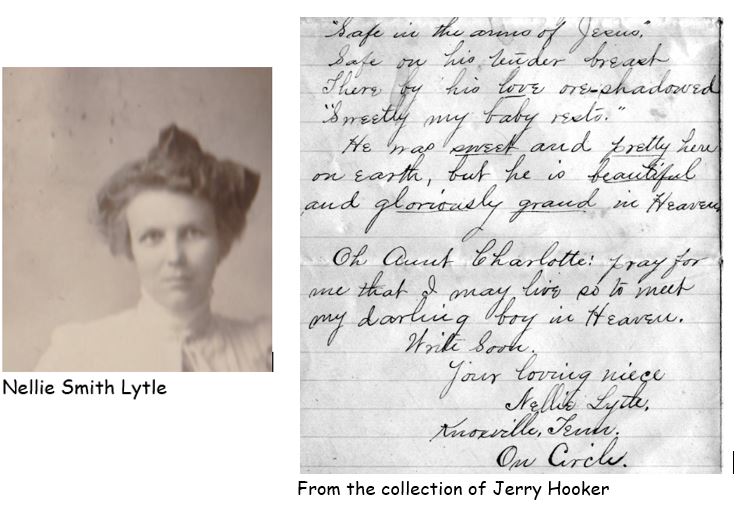 "Safe in the arms of Jesus,"
Safe on his tender breast
There by his love ore-shadowed
"Sweetly my baby rests."
He was sweet and pretty here
on earth, but he is beautiful
and gloriously grand in Heaven,
Oh Aunt Charlotte: pray for
me that I may live so to meet
my darling boy in Heaven.
Write Soon.
Your loving niece
Nellie Lytle,
Knoxville, Tenn.
On Circle.
Nellie Smith Lytle
From the collection of Jerry Hooker